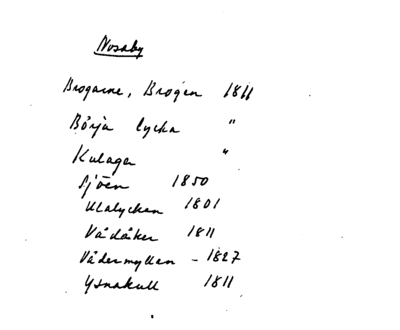 Nosaby
Brogarne, Brogen 1811
Börja lycka "
Kulager "
Sjöen 1850
Ulalyckan 1801
Vådåker 1811
Vädermyllan - 1827
Ysnakull 1811